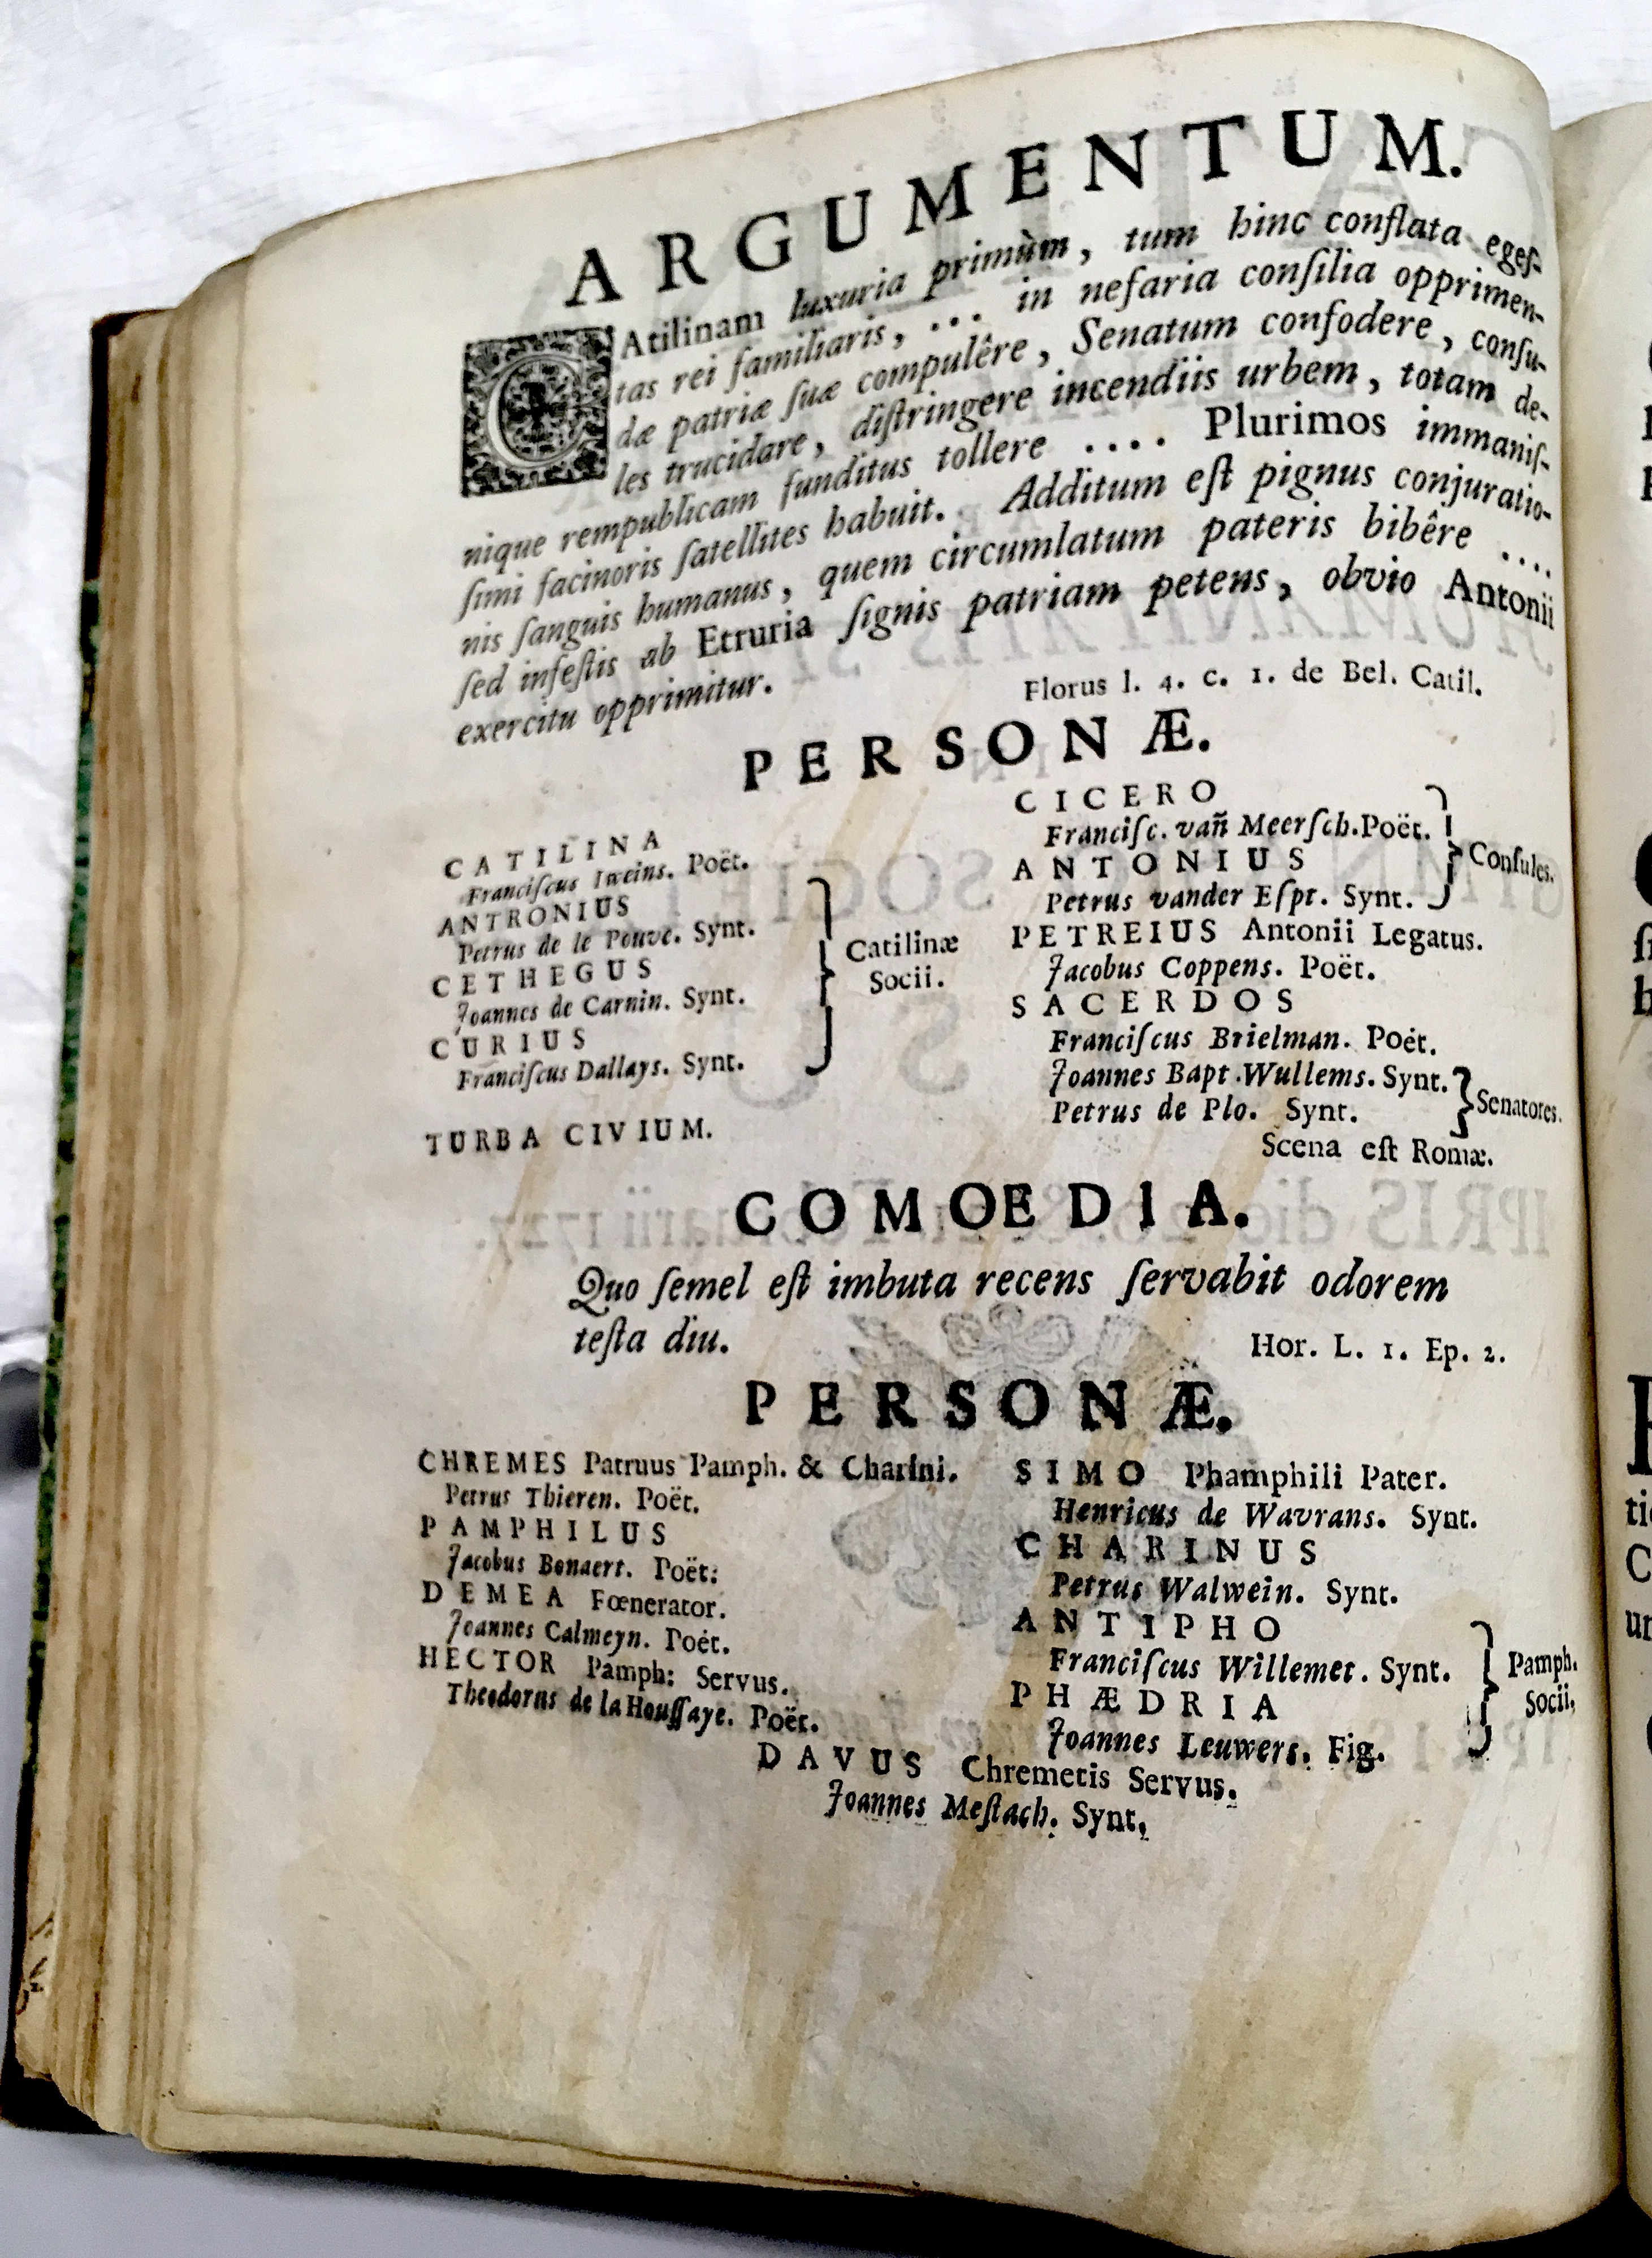 ARGUMENTUM.
CAtilinam luxuria primùm, tum hinc conflata egeſ-
tas rei familiaris, ... in nefaria conſilia opprimen-
dæ patriæ ſuæ compulêre, Senatum confodere, conſu-
les trucidare, diſtringere incendiis urbem, totam de-
nique rempublicam funditus tollere .... Plurimos immaniſ-
ſimi facinoris ſatellites habuit. Additum eſt pignus conjuratio-
nis ſanguis humanus, quem circumlatum pateris bibêre ....
ſed infeſtis ab Etruria ſignis patriam petens, obvio Antonii
exercitu opprimitur.
Florus l. 4. c. 1. de Bel. Catil.
PERSONÆ.
CATILINA
Franciſcus Iweins. Poët.
ANTRONIUS
Petrus de le Pouve. Synt.
CETHEGUS
Joannes de Carnin. Synt.
CURIUS
Franciſcus Dallays. Synt.
Catilinæ
Socii.
TURBA CIVIUM.
CICERO
Franciſc. vañ Meerſch. Poët.
ANTONIUS
Petrus vander Eſpt. Synt.
Conſules.
PETREIUS Antonii Legatus.
Jacobus Coppens. Poët.
SACERDOS
Franciſcus Brielman. Poët.
Joannes Bapt. Wullems. Synt.
Petrus de Plo. Synt.
Senatores.
Scena eſt Romæ.
COMOEDIA.
Quo ſemel eſt imbuta recens ſervabit odorem
teſta diu.
Hor. L. 1. Ep. 2.
PERSONÆ.
CHREMES Patruus Pamph. & Charini.
Petrus Thieren. Poët.
PAMPHILUS
Jacobus Bonaert. Poët:
DEMEA Fœnerator.
Joannes Calmeyn. Poët.
HECTOR Pamph: Servus.
Theodorus de la Houſſaye. Poët.
SIMO Phamphili Pater.
Henricus de Wavrans. Synt.
CHARINUS
Petrus Walwein. Synt.
ANTIPHO
Franciſcus Willemet. Synt.
PHÆDRIA
Joannes Leuwers. Fig.
Pamph.
Socii.
DAVUS Chremetis Servus.
Joannes Meſtach. Synt.